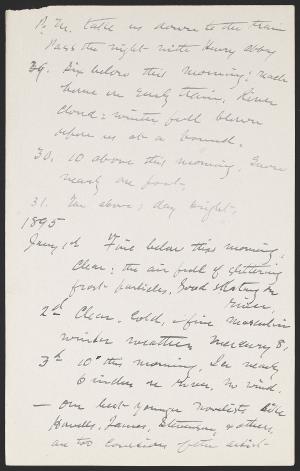 P. M. take us down to the train
Pass the night with Henry Abbey
29. Six below this morning; reach
home on early train. River
closed; winter full blown
upon us at a bound.
30. 10 above this morning. Snow
nearly one foot.
31. Ten above; day bright.
1895
Jany 1st Five below this morning.
Clear; the air full of glittering
frost particles, Good skating on
river.
2d Clear, cold, fine masculine
winter weather. Mercury 8,
3d 10° this morning, Ice nearly
6 inches on river, no wind.
— Our best younger novelists like
Howells, James, Stevenson, & others,
are too conscious of the artist